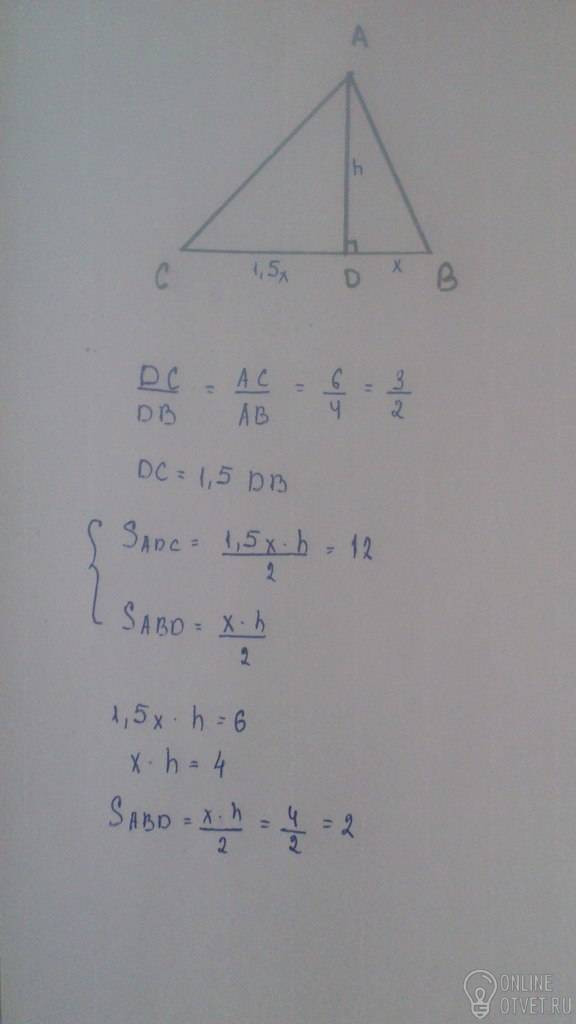 A
h
C 1,5x D x B
DC/DB = AC/AB = 6/4 = 3/2
DC = 1,5 DB
{ S ADC = 1,5x · h / 2 = 12
S ABD = x · h / 2
1,5x · h = 6
x · h = 4
S ABD = x · h / 2 = 4/2 = 2
ONLINE
OTVET.RU